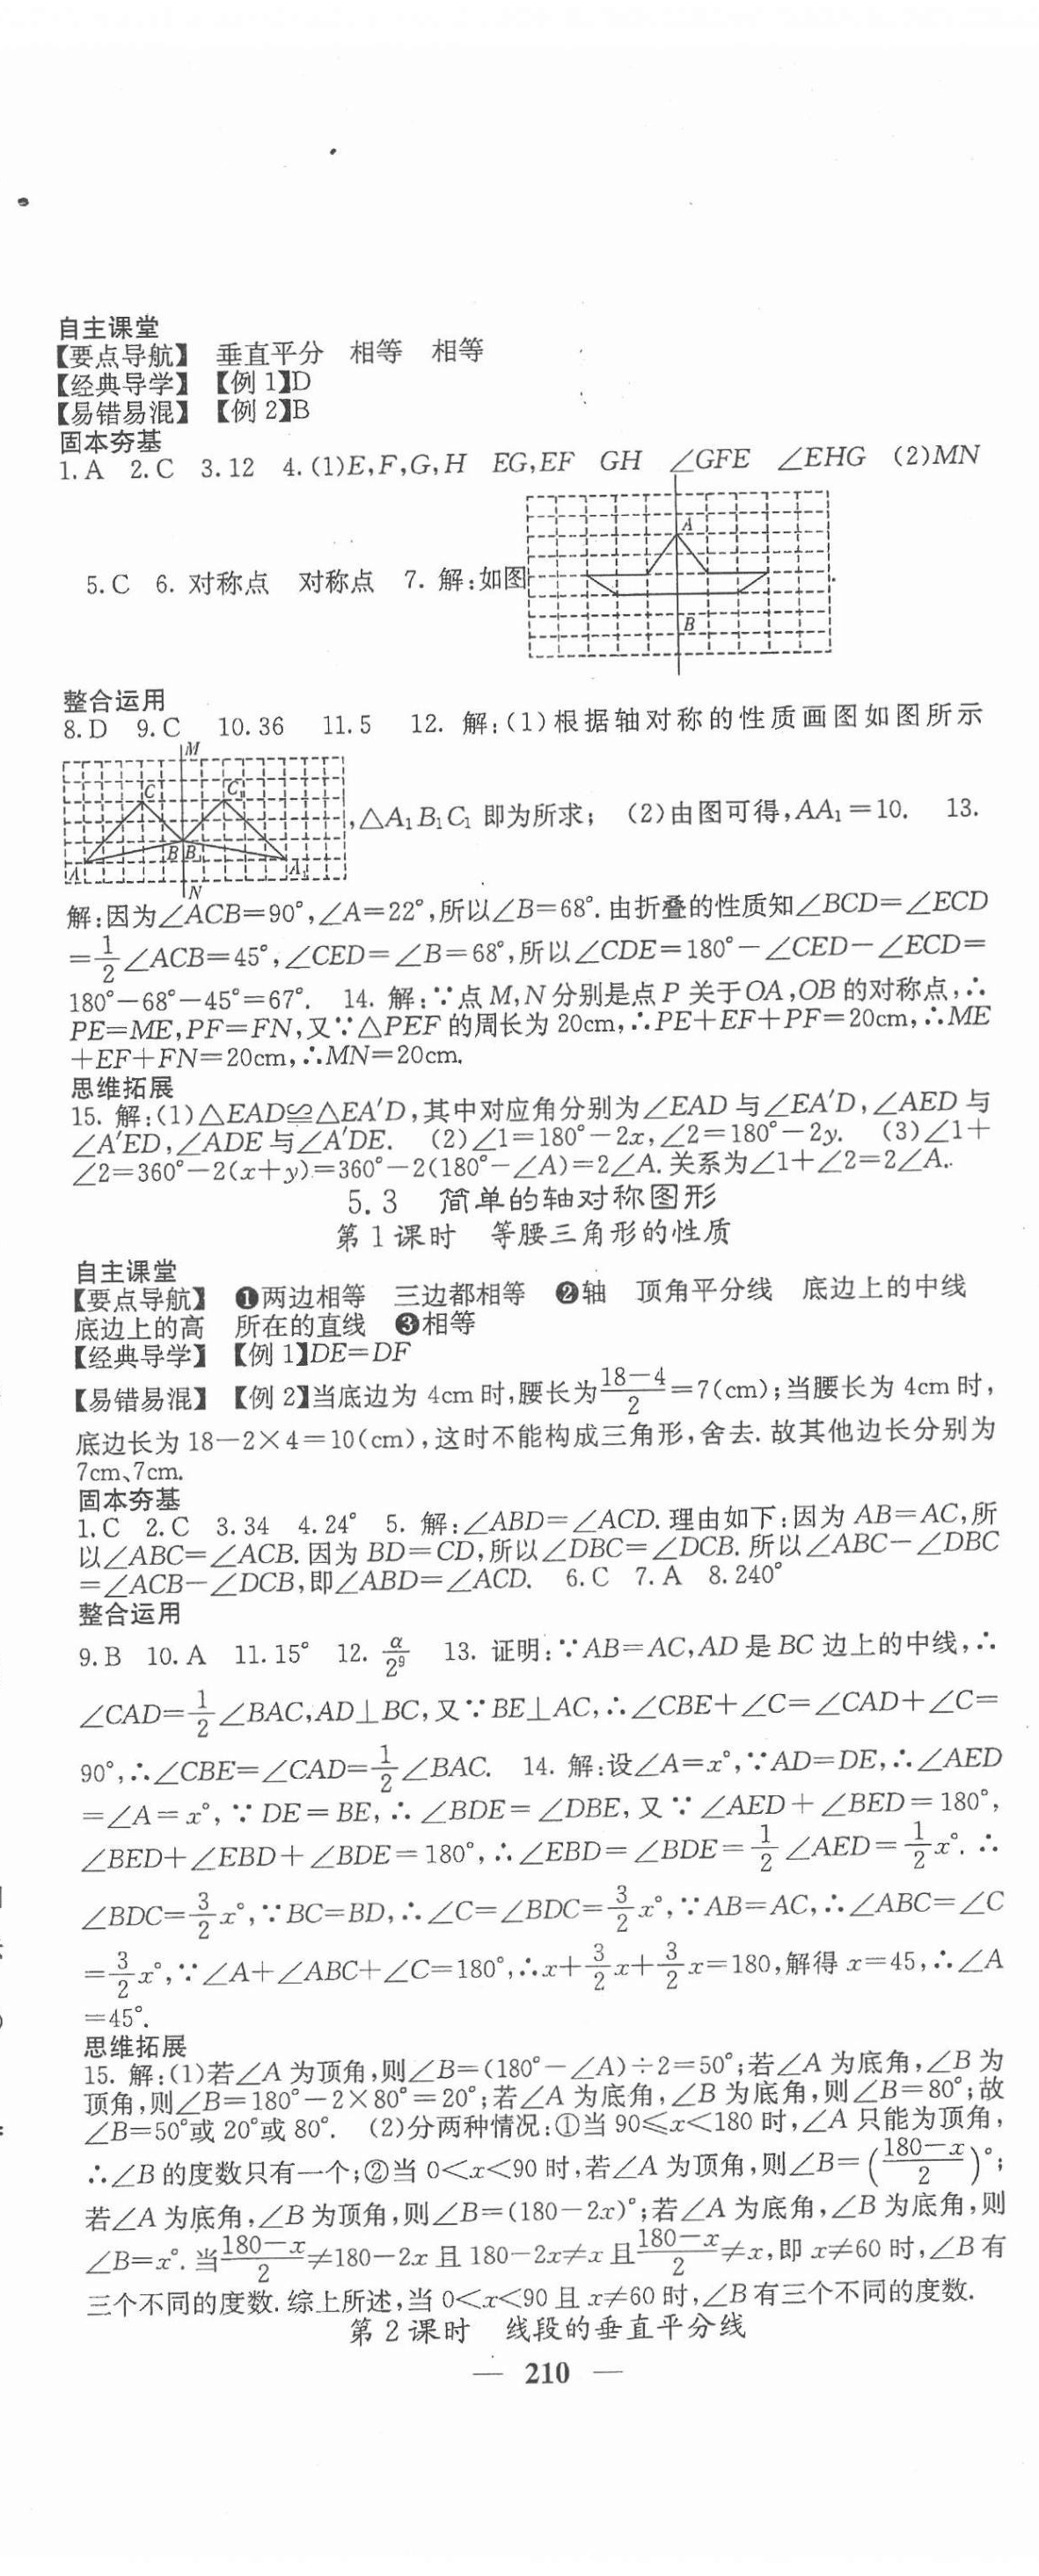 自主课堂
【要点导航】 垂直平分 相等 相等
【经典导学】【例 1】D
【易错易混】【例 2】B
固本夯基
1. A 2. C 3. 12 4. (1)E,F,G,H EG,EF GH ∠GFE ∠EHG (2)MN
A
5. C 6. 对称点 对称点 7. 解:如图 .
B
整合运用
8. D 9. C 10. 36 11. 5 12. 解:(1)根据轴对称的性质画图如图所示
M
C C₁
,△A₁B₁C₁ 即为所求; (2)由图可得,AA₁=10. 13.
B B₁
A A₁
N
解:因为∠ACB=90°,∠A=22°,所以∠B=68°. 由折叠的性质知∠BCD=∠ECD
=1/2∠ACB=45°,∠CED=∠B=68°,所以∠CDE=180°-∠CED-∠ECD=
180°-68°-45°=67°. 14. 解:∵点 M,N 分别是点 P 关于 OA,OB 的对称点,∴
PE=ME,PF=FN,又∵△PEF 的周长为 20cm,∴PE+EF+PF=20cm,∴ME
+EF+FN=20cm,∴MN=20cm.
思维拓展
15. 解:(1)△EAD≌△EA'D,其中对应角分别为∠EAD 与∠EA'D,∠AED 与
∠A'ED,∠ADE 与∠A'DE. (2)∠1=180°-2x,∠2=180°-2y. (3)∠1+
∠2=360°-2(x+y)=360°-2(180°-∠A)=2∠A. 关系为∠1+∠2=2∠A.
5.3 简单的轴对称图形
第 1 课时 等腰三角形的性质
自主课堂
【要点导航】 ❶两边相等 三边都相等 ❷轴 顶角平分线 底边上的中线
底边上的高 所在的直线 ❸相等
【经典导学】【例 1】DE=DF
【易错易混】【例 2】当底边为 4cm 时,腰长为(18-4)/2=7(cm);当腰长为 4cm 时,
底边长为 18-2×4=10(cm),这时不能构成三角形,舍去. 故其他边长分别为
7cm、7cm.
固本夯基
1. C 2. C 3. 34 4. 24° 5. 解:∠ABD=∠ACD. 理由如下:因为 AB=AC,所
以∠ABC=∠ACB. 因为 BD=CD,所以∠DBC=∠DCB. 所以∠ABC-∠DBC
=∠ACB-∠DCB,即∠ABD=∠ACD. 6. C 7. A 8. 240°
整合运用
9. B 10. A 11. 15° 12. α/2⁹ 13. 证明:∵AB=AC,AD 是 BC 边上的中线,∴
∠CAD=1/2∠BAC,AD⊥BC,又∵BE⊥AC,∴∠CBE+∠C=∠CAD+∠C=
90°,∴∠CBE=∠CAD=1/2∠BAC. 14. 解:设∠A=x°,∵AD=DE,∴∠AED
=∠A=x°,∵DE=BE,∴∠BDE=∠DBE,又∵∠AED+∠BED=180°,
∠BED+∠EBD+∠BDE=180°,∴∠EBD=∠BDE=1/2∠AED=1/2x°. ∴
∠BDC=3/2x°,∵BC=BD,∴∠C=∠BDC=3/2x°,∵AB=AC,∴∠ABC=∠C
=3/2x°,∵∠A+∠ABC+∠C=180°,∴x+3/2x+3/2x=180,解得 x=45,∴∠A
=45°.
思维拓展
15. 解:(1)若∠A 为顶角,则∠B=(180°-∠A)÷2=50°;若∠A 为底角,∠B 为
顶角,则∠B=180°-2×80°=20°;若∠A 为底角,∠B 为底角,则∠B=80°;故
∠B=50°或 20°或 80°. (2)分两种情况:①当 90≤x<180 时,∠A 只能为顶角,
∴∠B 的度数只有一个;②当 0<x<90 时,若∠A 为顶角,则∠B=((180-x)/2)°;
若∠A 为底角,∠B 为顶角,则∠B=(180-2x)°;若∠A 为底角,∠B 为底角,则
∠B=x°. 当(180-x)/2≠180-2x 且 180-2x≠x 且(180-x)/2≠x,即 x≠60 时,∠B 有
三个不同的度数. 综上所述,当 0<x<90 且 x≠60 时,∠B 有三个不同的度数.
第 2 课时 线段的垂直平分线
— 210 —